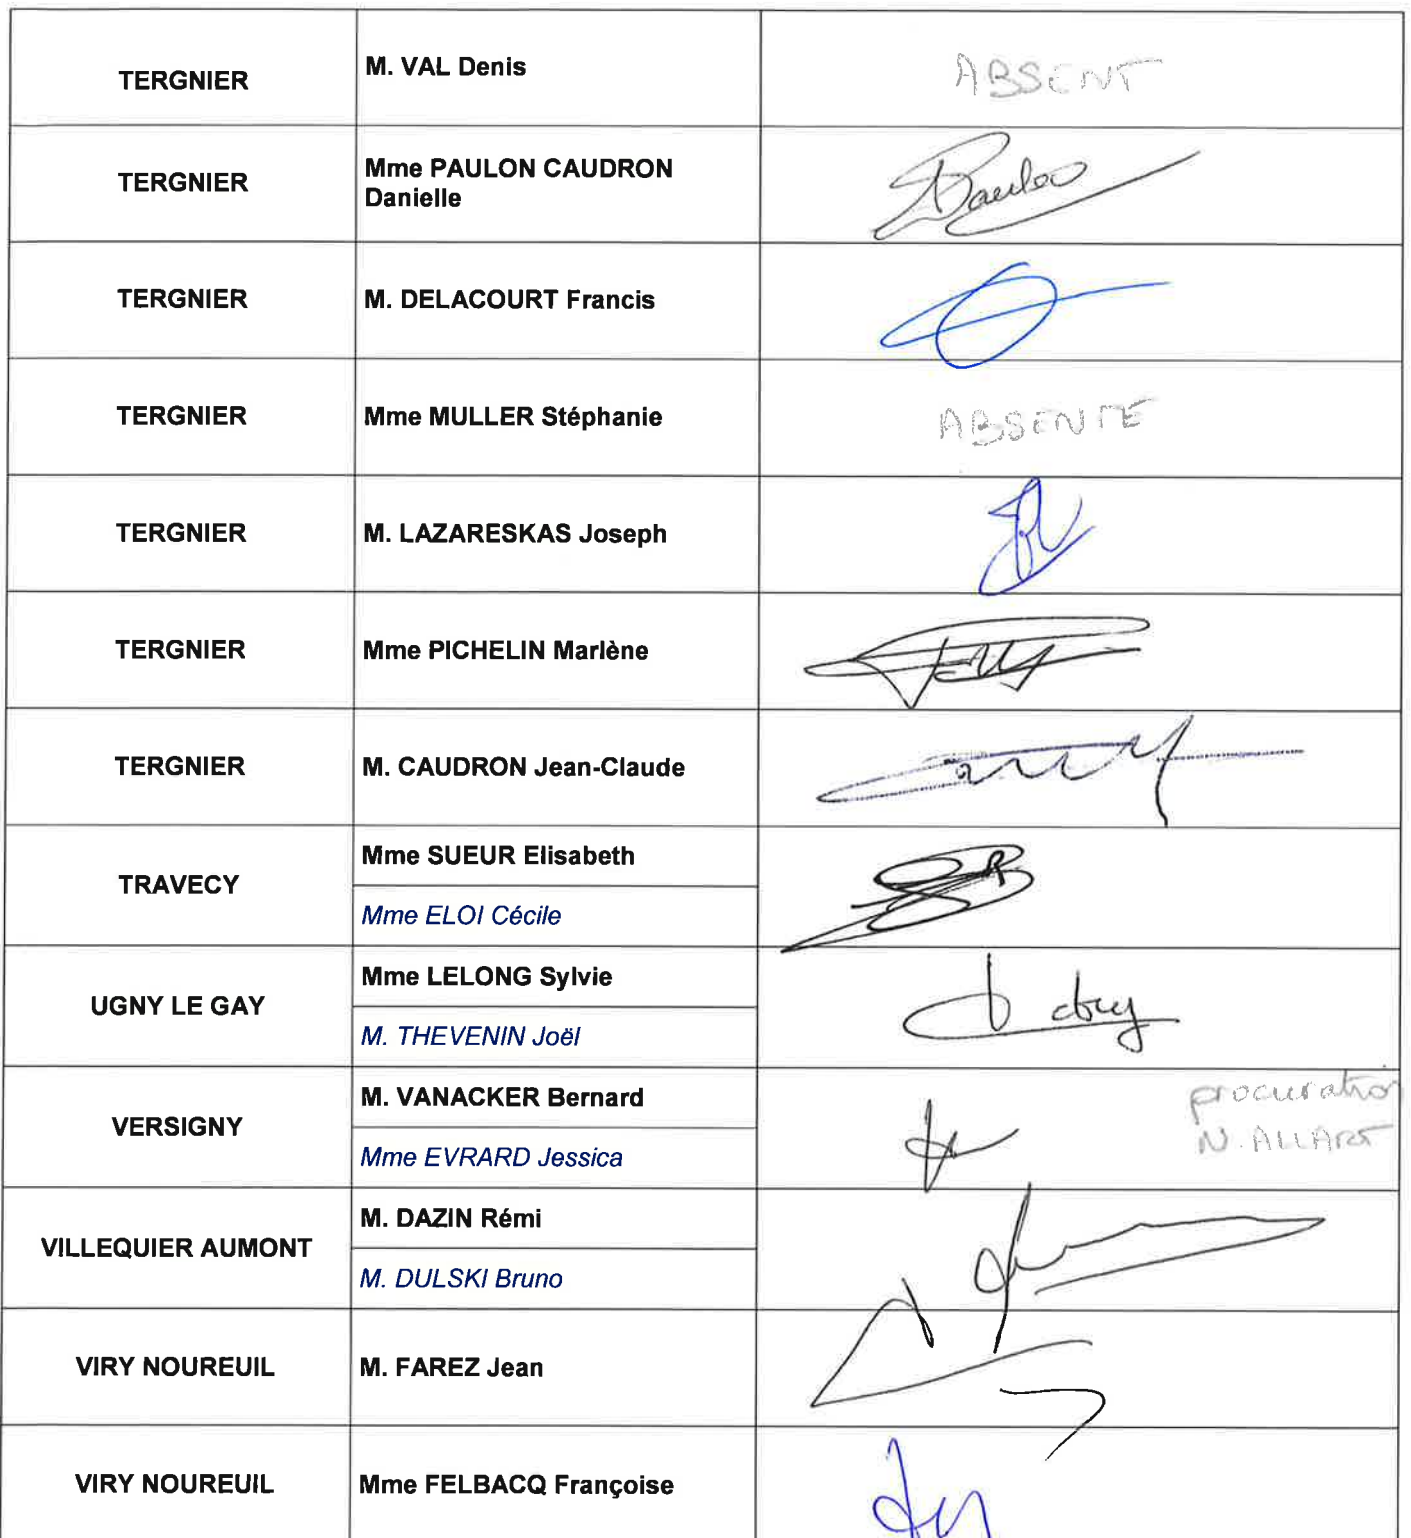 TERGNIER
M. VAL Denis
ABSENT
TERGNIER
Mme PAULON CAUDRON
Danielle
TERGNIER
M. DELACOURT Francis
TERGNIER
Mme MULLER Stéphanie
ABSENTE
TERGNIER
M. LAZARESKAS Joseph
TERGNIER
Mme PICHELIN Marlène
TERGNIER
M. CAUDRON Jean-Claude
TRAVECY
Mme SUEUR Elisabeth
Mme ELOI Cécile
UGNY LE GAY
Mme LELONG Sylvie
M. THEVENIN Joël
VERSIGNY
M. VANACKER Bernard
Mme EVRARD Jessica
procuration
N. ALLART
VILLEQUIER AUMONT
M. DAZIN Rémi
M. DULSKI Bruno
VIRY NOUREUIL
M. FAREZ Jean
VIRY NOUREUIL
Mme FELBACQ Françoise